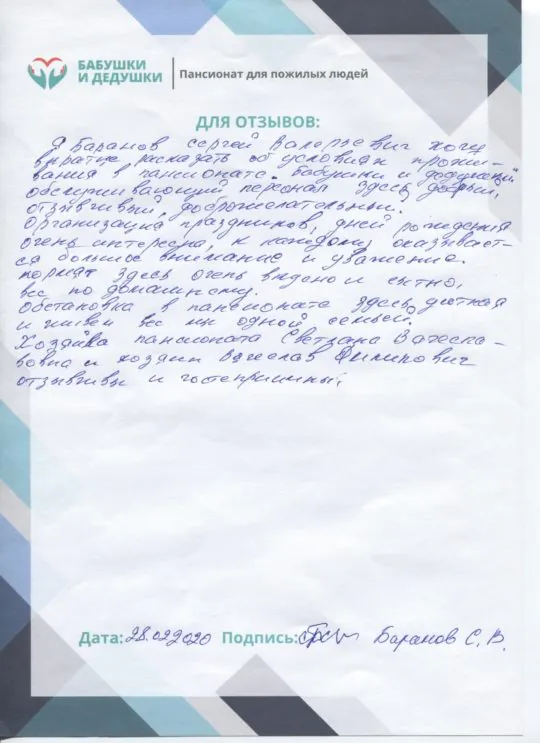 БАБУШКИ
И ДЕДУШКИ
Пансионат для пожилых людей
ДЛЯ ОТЗЫВОВ:
Я Баранов Сергей Валерьевич хочу
вкратце рассказать об условиях прожи-
вания в пансионате. Бабушки и дедушки
обслуживающий персонал здесь добрый,
отзывчивый, доброжелательный.
Организация праздников, дней рождения
очень интересна, к каждому оказывает-
ся большое внимание и уважение.
Кормят здесь очень вкусно и сытно,
все по домашнему.
Обстановка в пансионате здесь уютная
и живем все мы одной семьей.
Хозяйка пансионата Светлана Вячесла-
вовна и хозяин Вячеслав
отзывчивы и гостеприимны.
Дата: 28.02.2020 Подпись: Баранов С. В.